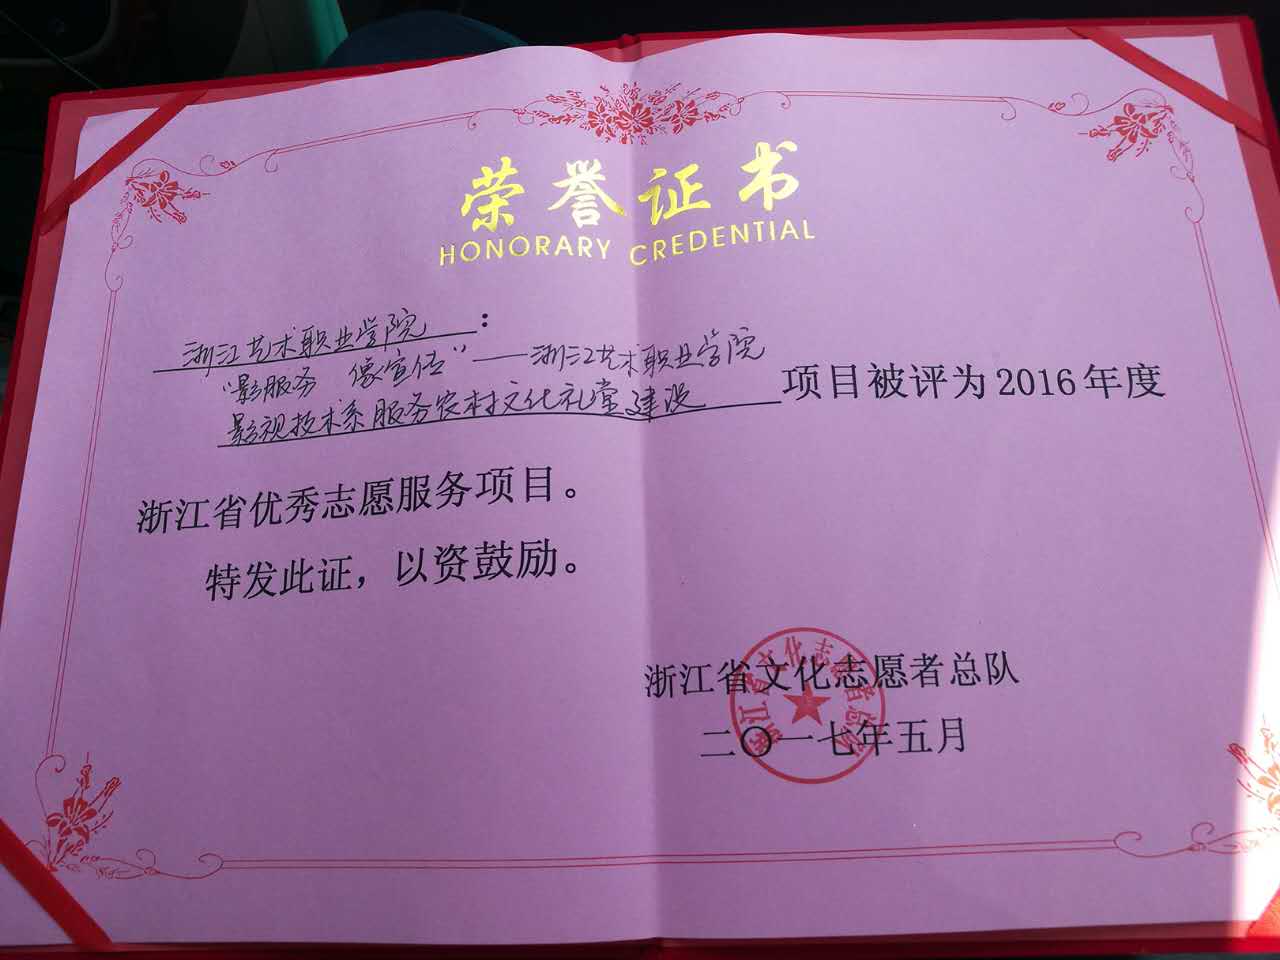 荣誉证书
HONORARY CREDENTIAL
浙江艺术职业学院：
“影服务 像宣传”——浙江艺术职业学院
影视技术系服务农村文化礼堂建设 项目被评为2016年度
浙江省优秀志愿服务项目。
特发此证，以资鼓励。
浙江省文化志愿者总队
二〇一七年五月
浙江省文化志愿者总队